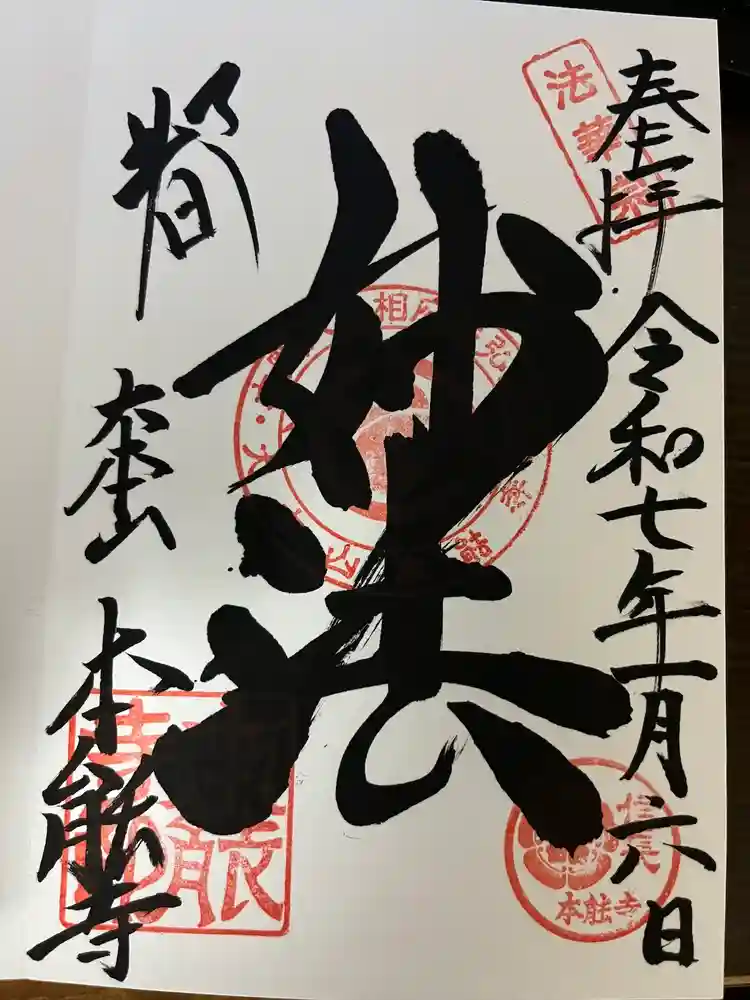 奉拝
令和七年一月六日
法華宗
妙法
大本山
本能寺
信長
本能寺